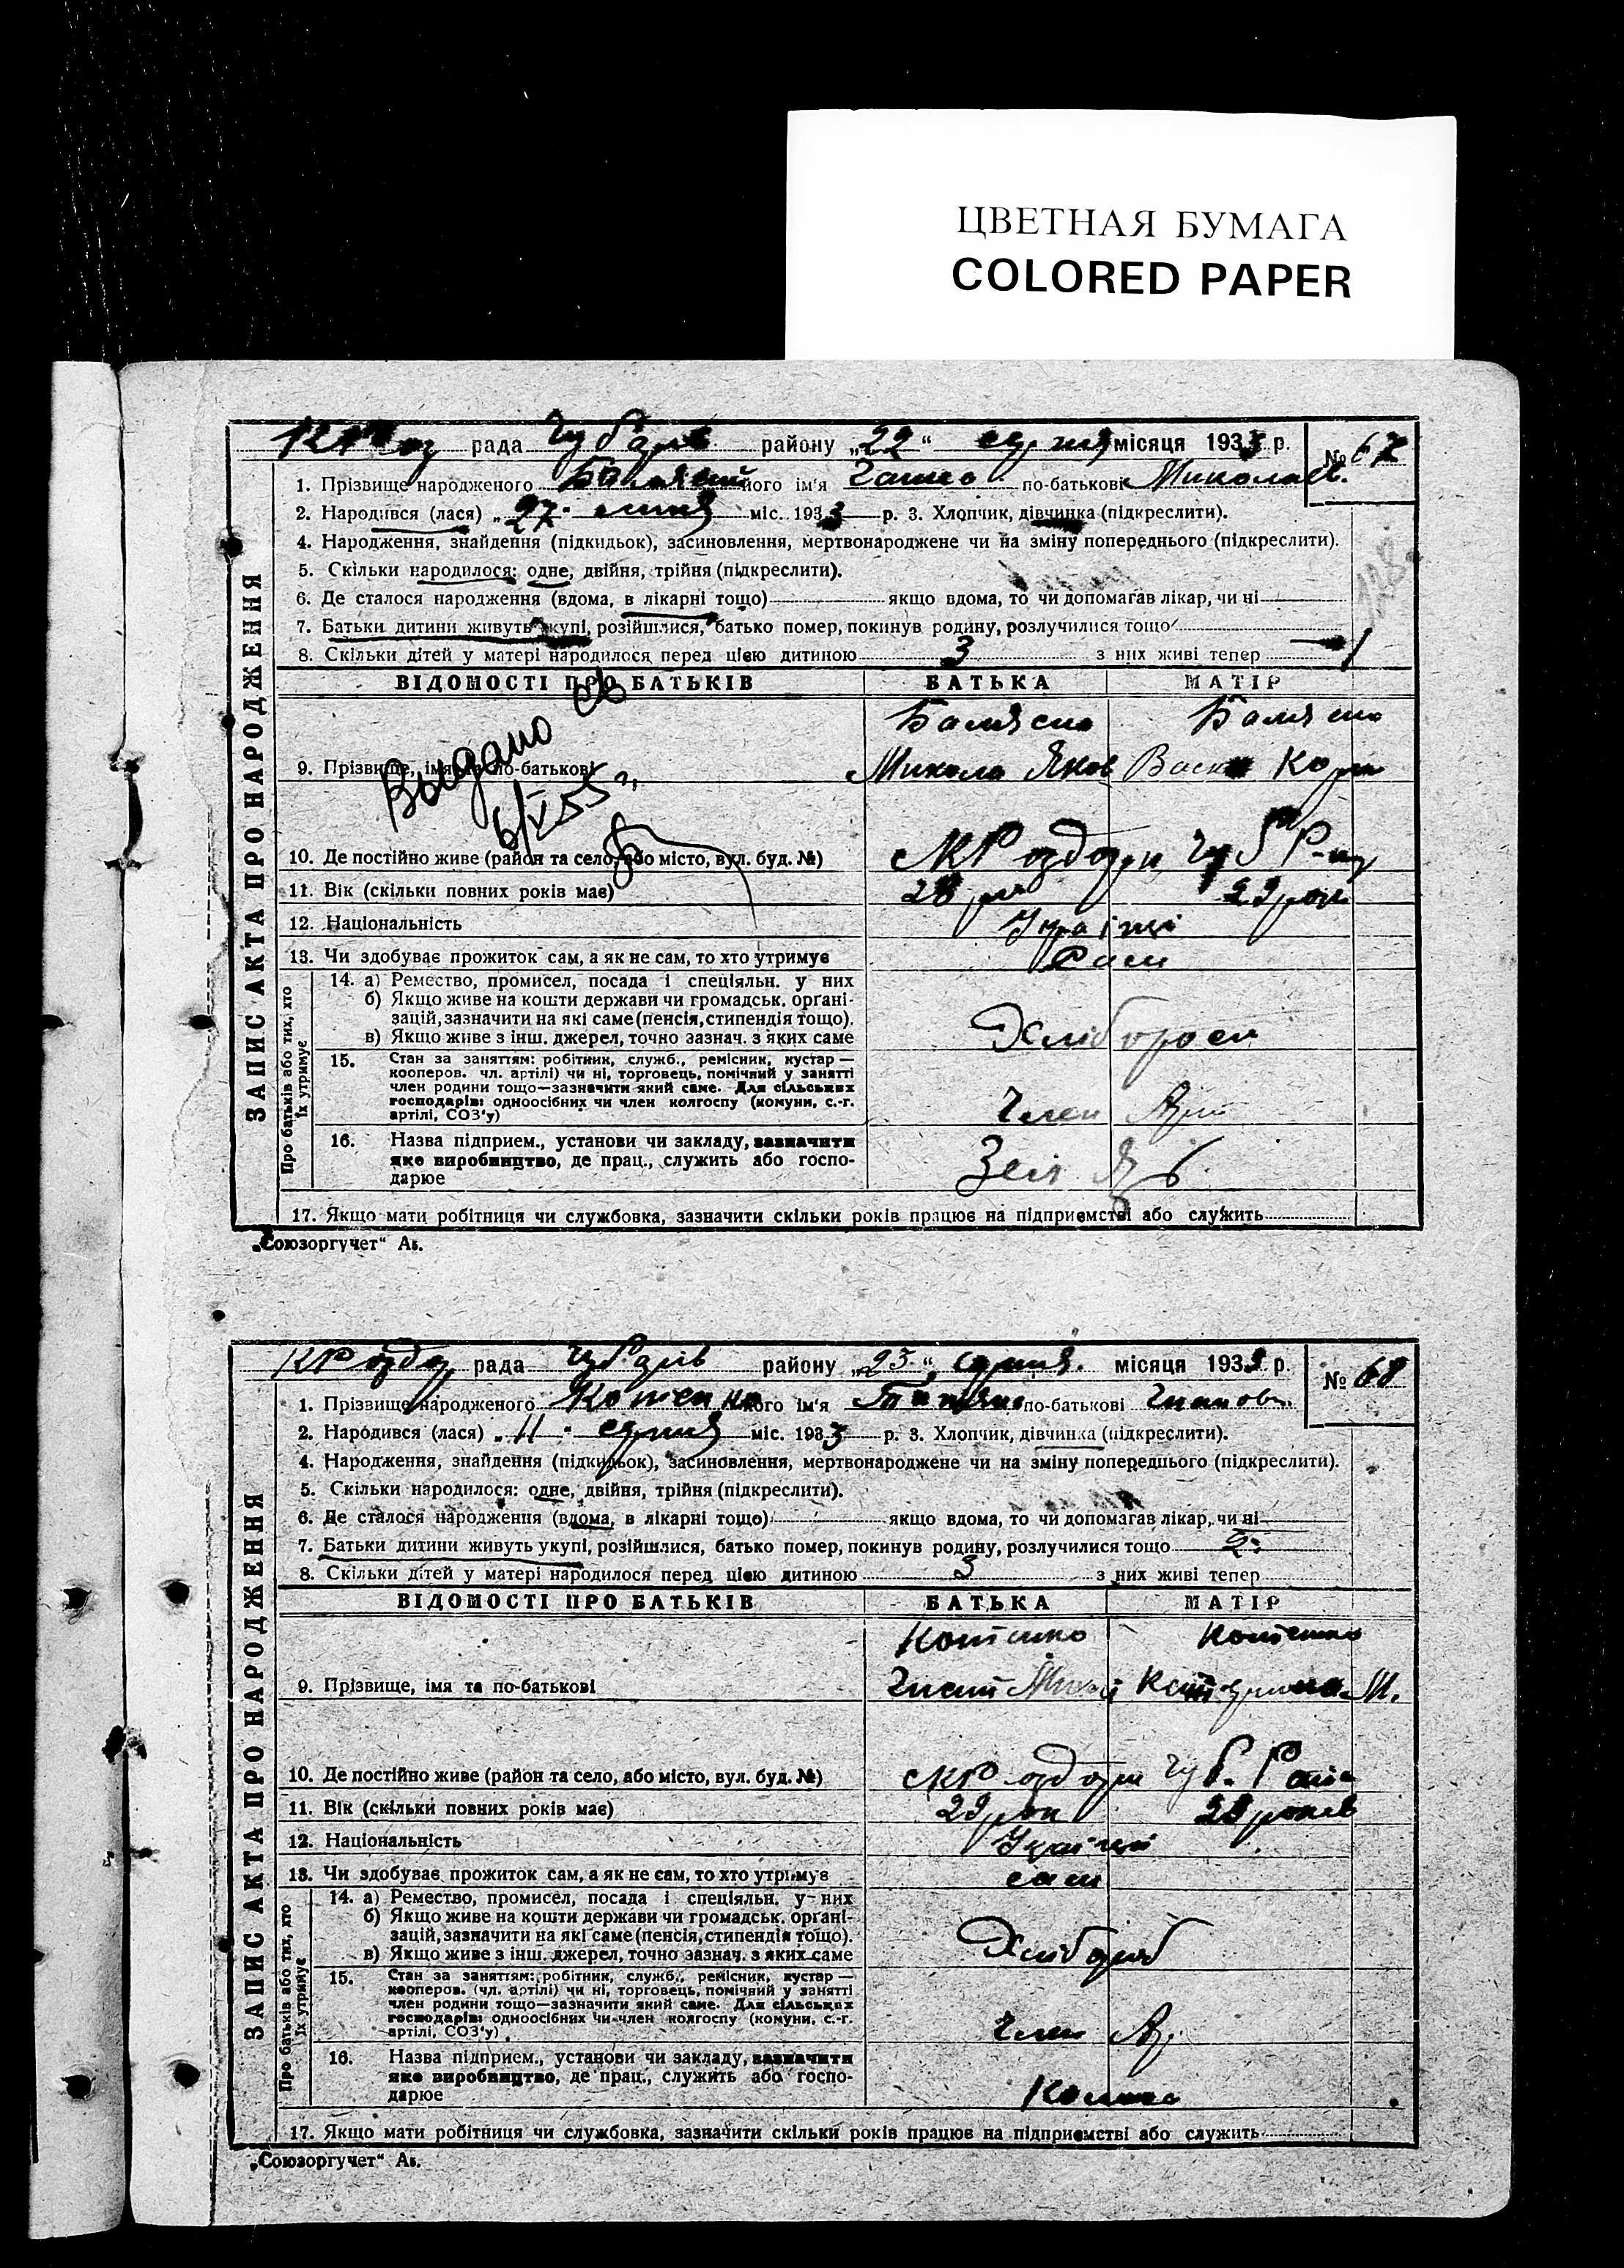 ЦВЕТНАЯ БУМАГА
COLORED PAPER
рада Чубарів району „22“ серпня місяця 1933 р. № 67
1. Прізвище народженого його ім'я по-батькові Микола
2. Народився (лася) „27" липня міс. 1933 р. 3. Хлопчик, дівчинка (підкреслити).
4. Народження, знайдення (підкидьок), засиновлення, мертвонароджене чи на зміну попереднього (підкреслити).
5. Скільки народилося: одне, двійня, трійня (підкреслити).
6. Де сталося народження (вдома, в лікарні тощо) якщо вдома, то чи допомагав лікар, чи ні
7. Батьки дитини живуть укупі, розійшлися, батько помер, покинув родину, розлучилися тощо
8. Скільки дітей у матері народилося перед цією дитиною 3 з них живі тепер 1
ЗАПИС АКТА ПРО НАРОДЖЕННЯ
ВІДОМОСТІ ПРО БАТЬКІВ БАТЬКА МАТІР
Выдано св
6/V 55 г.
9. Прізвище, імя та по-батькові
Микола Яков
10. Де постійно живе (район та село, або місто, вул. буд. №)
11. Вік (скільки повних років має) 28 29 рок
12. Національність Українці
13. Чи здобуває прожиток сам, а як не сам, то хто утримує Сами
Про батьків або тих, хто їх утримує
14. а) Ремество, промисел, посада і спеціяльн. у них
б) Якщо живе на кошти держави чи громадськ. органі-
зацій, зазначити на які саме (пенсія, стипендія тощо).
в) Якщо живе з інш. джерел, точно зазнач. з яких саме
15. Стан за заняттям: робітник, служб., ремісник, кустар —
кооперов. чл. артілі) чи ні, торговець, помічний у занятті
член родини тощо—зазначити який саме. Для сільських
господарів: одноосібних чи член колгоспу (комуни, с.-г.
артілі, СОЗ'у)
Член Арт
16. Назва підприєм., установи чи закладу, зазначити
яке виробництво, де прац., служить або госпо-
дарює
17. Якщо мати робітниця чи службовка, зазначити скільки років працює на підприємстві або служить
„Союзоргучет“ Ат.
рада Чубарів району „23“ серпня місяця 1933 р. № 68
1. Прізвище народженого Котенко його ім'я Тетяна по-батькові Гнатов
2. Народився (лася) „11" серпня міс. 1933 р. 3. Хлопчик, дівчинка (підкреслити).
4. Народження, знайдення (підкидьок), засиновлення, мертвонароджене чи на зміну попереднього (підкреслити).
5. Скільки народилося: одне, двійня, трійня (підкреслити).
6. Де сталося народження (вдома, в лікарні тощо) якщо вдома, то чи допомагав лікар, чи ні
7. Батьки дитини живуть укупі, розійшлися, батько помер, покинув родину, розлучилися тощо 2
8. Скільки дітей у матері народилося перед цією дитиною 3 з них живі тепер
ЗАПИС АКТА ПРО НАРОДЖЕННЯ
ВІДОМОСТІ ПРО БАТЬКІВ БАТЬКА МАТІР
Котенко Котенко
9. Прізвище, імя та по-батькові Гнат М.
10. Де постійно живе (район та село, або місто, вул. буд. №)
11. Вік (скільки повних років має) 29 рок 28 років
12. Національність Українці
13. Чи здобуває прожиток сам, а як не сам, то хто утримує сами
Про батьків або тих, хто їх утримує
14. а) Ремество, промисел, посада і спеціяльн. у них
б) Якщо живе на кошти держави чи громадськ. органі-
зацій, зазначити на які саме (пенсія, стипендія тощо).
в) Якщо живе з інш. джерел, точно зазнач. з яких саме
Хлібороб
15. Стан за заняттям: робітник, служб., ремісник, кустар —
кооперов. (чл. артілі) чи ні, торговець, помічний у занятті
член родини тощо—зазначити який саме. Для сільських
господарів: одноосібних чи член колгоспу (комуни, с.-г.
артілі, СОЗ'у)
Член Ар
16. Назва підприєм., установи чи закладу, зазначити
яке виробництво, де прац., служить або госпо-
дарює
17. Якщо мати робітниця чи службовка, зазначити скільки років працює на підприємстві або служить
„Союзоргучет“ Ат.